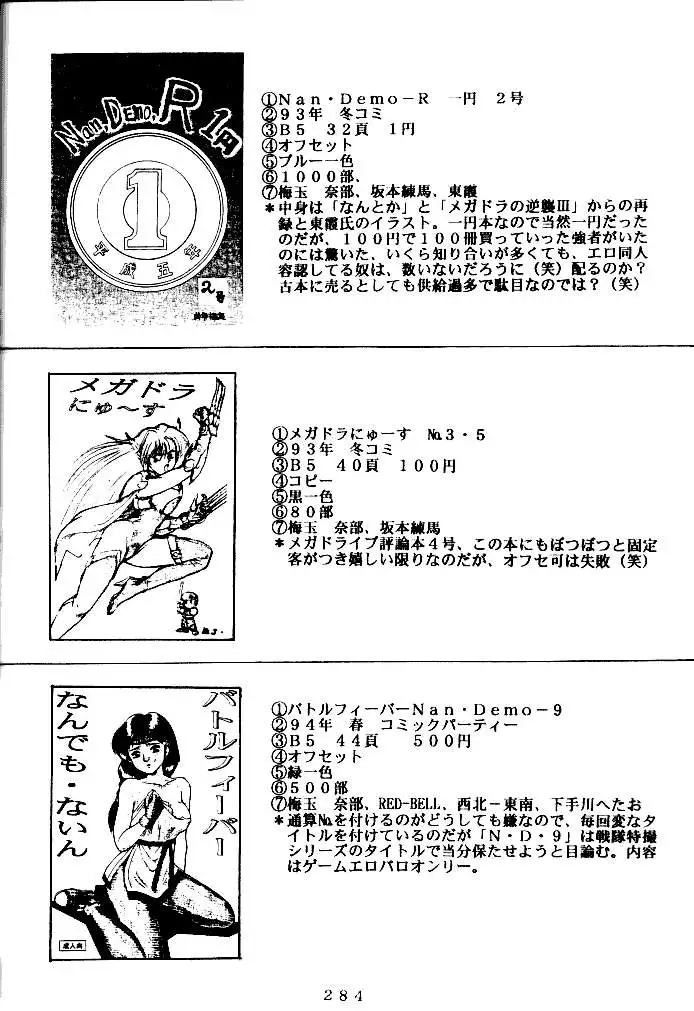 Nan.DEmo.R 1円
1
平成五年
2号
①Ｎａｎ・Ｄｅｍｏ－Ｒ　一円　２号
②９３年　冬コミ
③Ｂ５　３２頁　１円
④オフセット
⑤ブルー一色
⑥１０００部、
⑦梅玉　奈部、坂本練馬、東霞
＊中身は「なんとか」と「メガドラの逆襲Ⅲ」からの再
録と東霞氏のイラスト。一円本なので当然一円だった
のだが、１００円で１００冊買っていった強者がいた
のには驚いた、いくら知り合いが多くても、エロ同人
容認してる奴は、数いないだろうに（笑）配るのか？
古本に売るとしても供給過多で駄目なのでは？（笑）
メガドラ
にゅ～す
①メガドラにゅーす　№３・５
②９３年　冬コミ
③Ｂ５　４０頁　１００円
④コピー
⑤黒一色
⑥８０部
⑦梅玉　奈部、坂本練馬
＊メガドライブ評論本４号、この本にもぼつぼつと固定
客がつき嬉しい限りなのだが、オフセ可は失敗（笑）
バトルフィーバー
なんでも・ないん
成人向
①バトルフィーバーＮａｎ・Ｄｅｍｏ－９
②９４年　春　コミックパーティー
③Ｂ５　４４頁　　５００円
④オフセット
⑤緑一色
⑥５００部
⑦梅玉　奈部、RED-BELL、西北－東南、下手川へたお
＊通算№を付けるのがどうしても嫌なので、毎回変なタ
イトルを付けているのだが「Ｎ・Ｄ・９」は戦隊特撮
シリーズのタイトルで当分保たせようと目論む。内容
はゲームエロパロオンリー。
２８４